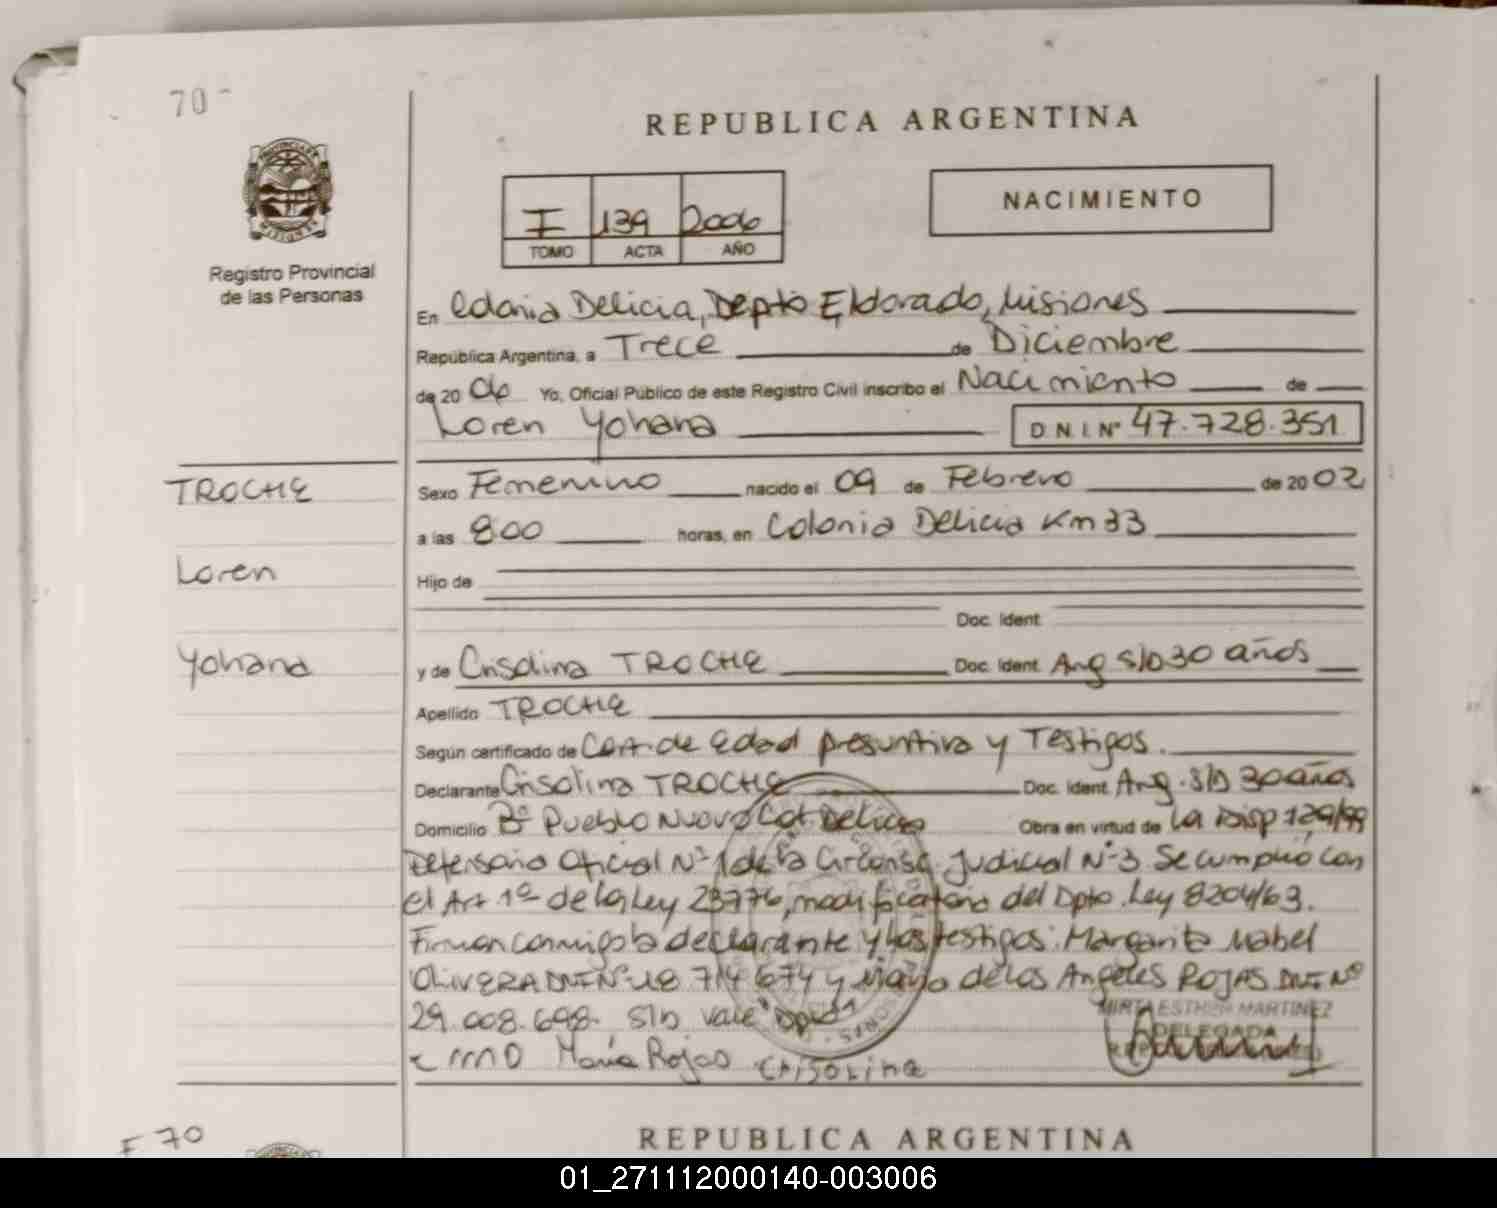 70-
REPUBLICA ARGENTINA
I 139 2006
TOMO ACTA AÑO
NACIMIENTO
Registro Provincial
de las Personas
En Colonia Delicia, Depto Eldorado, Misiones
República Argentina, a Trece de Diciembre
de 20 06 Yo, Oficial Público de este Registro Civil inscribo el Nacimiento de
Loren Yohana D.N.I. Nº 47.728.351
TROCHE
Loren
Yohana
Sexo Femenino nacido el 09 de Febrero de 20 02
a las 800 horas, en Colonia Delicia Km 33
Hijo de
Doc. Ident.
y de Crisolina TROCHE Doc. Ident. Arg S/D 30 años
Apellido TROCHE
Según certificado de Cert. de Edad presuntiva y Testigos.
Declarante Crisolina TROCHE Doc. Ident. Arg. S/D 30 años
Domicilio Bº Pueblo Nuevo Col. Delicia Obra en virtud de La Disp 129/99
Defensoria Oficial Nº 1 de la Circunsc. Judicial Nº 3 Se cumplió con
el Art 1º de la Ley 23776, modificatoria del Dpto. Ley 8204/63.
Firman conmigo la declarante y los testigos: Margarita Mabel
OLIVERA DNI Nº 18 714 674 y Maria de los Angeles ROJAS DNI Nº
29.008.698. S/b Vale
MIRTA ESTHER MARTINEZ
DELEGADA
Maria Rojas Crisolina
F 70
REPUBLICA ARGENTINA
01_271112000140-003006